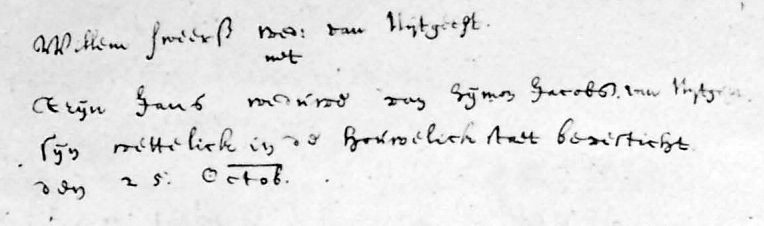 Willem sweersz wed: van Uijtgeest.
met
Trijn Jans weduwe van Sijmon Jacobsz. van Uijtgeest
sijn wettelick in de houwelick staet bevesticht
den 25. Octob.